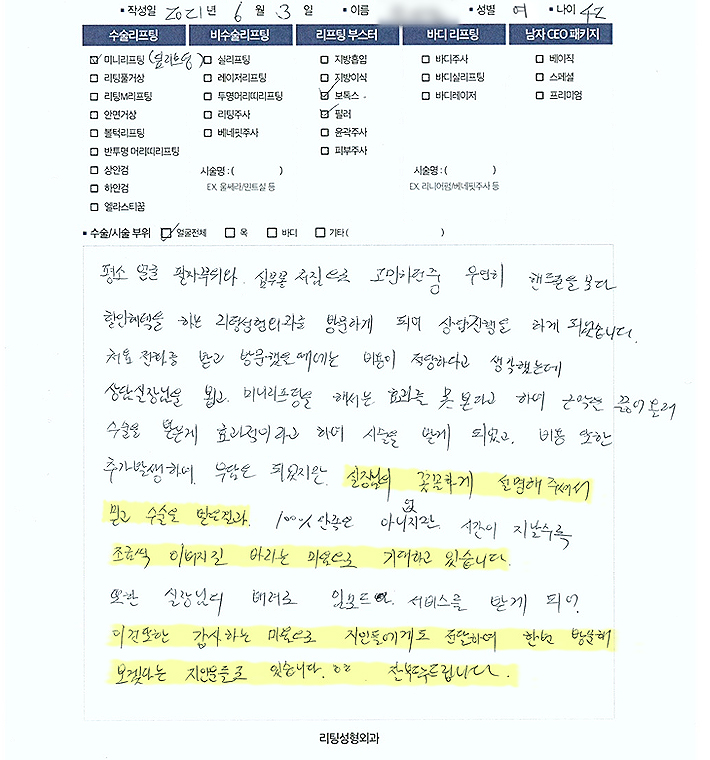 ▪ 작성일 2021년 6월 3일 ▪ 이름 ▪ 성별 여 ▪ 나이 42
수술리프팅 비수술리프팅 리프팅 부스터 바디 리프팅 남자 CEO 패키지
미니리프팅 실리프팅 지방흡입 바디주사 베이직
리팅풀거상 레이저리프팅 지방이식 바디실리프팅 스페셜
리팅M리프팅 투명머리띠리프팅 보톡스 바디레이저 프리미엄
안면거상 리팅주사 필러
볼턱리프팅 베네핏주사 윤곽주사
반투명 머리띠리프팅 피부주사
상안검 시술명 : ( ) 시술명 : ( )
하안검 EX. 울쎄라/민트실 등 EX. 리니어펌/베네핏주사 등
엘라스티꿈
▪ 수술/시술 부위 얼굴전체 목 바디 기타 ( )
평소 얼굴 팔자부위와 심부볼 처짐으로 고민하던중 우연히 핸드폰을 보다
할인혜택을 하는 리팅성형외과를 방문하게 되어 상담진행을 하게 되었습니다.
처음 전화를 받고 방문했을때에는 비용이 적당하다고 생각했는데
상담실장님을 뵙고 미니리프팅을 해서는 효과를 못본다고 하여 근막을 끌어올려
수술을 받는게 효과적이라고 하여 시술을 받게 되었고, 비용 또한
추가발생하여 부담은 되었지만 실장님이 꼼꼼하게 설명해 주셔서
믿고 수술을 받은결과 100% 만족은 아니지만 시간이 지날수록
조금씩 이뻐지길 바라는 마음으로 기대하고 있습니다.
또한 실장님의 배려로 서비스를 받게 되어
이것또한 감사하는 마음으로 지인들에게도 전달하여 한번 방문해
보겠다는 지인분들도 있습니다. ㅎㅎ 잘부탁드립니다.
리팅성형외과